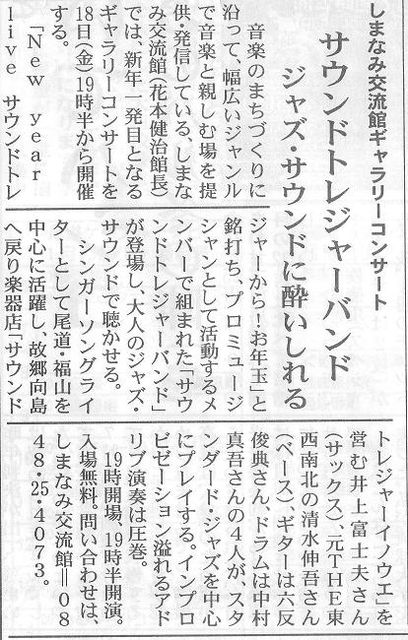 しまなみ交流館ギャラリーコンサート
サウンドトレジャーバンド
ジャズ・サウンドに酔いしれる
音楽のまちづくりに
沿って、幅広いジャンル
で音楽と親しむ場を提
供・発信している、しまな
み交流館（花本健治館長）
では、新年一発目となる
ギャラリーコンサートを
18日（金）19時半から開催
する。
「New year
live サウンドトレ
ジャーから！お年玉」と
銘打ち、プロミュージ
シャンとして活動するメ
ンバーで組まれた「サウ
ンドトレジャーバンド」
が登場し、大人のジャズ・
サウンドで聴かせる。
シンガーソングライ
ターとして尾道・福山を
中心に活躍し、故郷向島
へ戻り楽器店「サウンド
トレジャーイノウエ」を
営む井上富士夫さん
（サックス）、元THE東
西南北の清水伸吾さん
（ベース）、ギターは六反
俊典さん、ドラムは中村
真吾さんの4人が、スタ
ンダード・ジャズを中心
にプレイする。インプロ
ビゼーション溢れるアド
リブ演奏は圧巻。
19時開場、19時半開演。
入場無料。問い合わせは、
しまなみ交流館＝08
48・25・4073。